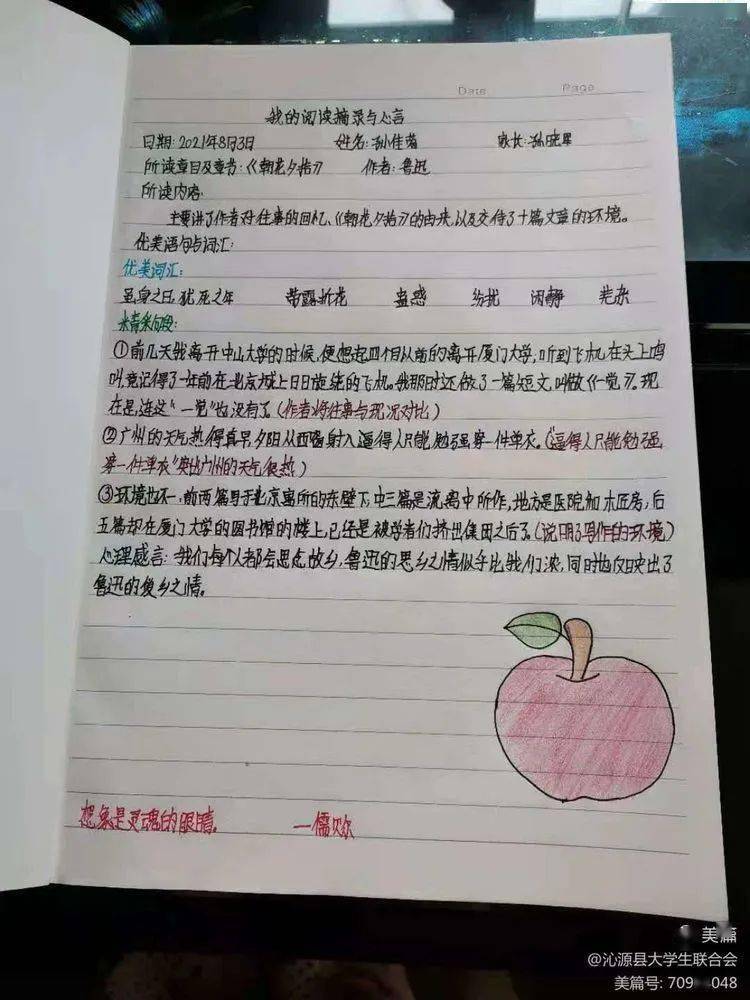 Date Page
我的阅读摘录与心言
日期:2021年8月3日 姓名:孙佳 家长:孙晓
所读章目及章节:《朝花夕拾》 作者:鲁迅
所读内容:
主要讲了作者对往事的回忆、《朝花夕拾》的由来,以及交待了十篇文章的环境。
优美语句与词汇:
优美词汇:
虽身之日,犹死之年 带露折花 蛊惑 纷扰 闲静 芜杂
精彩句段:
①前几天我离开中山大学的时候,便想起四个月以前的离开厦门大学;听到飞机在头上鸣
叫,竟记得了一年前在北京城上日日旋绕的飞机。我那时还做了一篇短文,叫做《一觉》。现
在是,连这“一觉”也没有了。(作者将往事与现况对比)
②广州的天气热得真早,夕阳从西窗射入,逼得人只能勉强穿一件单衣。(“逼得人只能勉强
穿一件单衣”突出广州的天气很热)
③环境也不一:前两篇写于北京寓所的东壁下;中三篇是流离中所作,地方是医院和木匠房;后
五篇却在厦门大学的图书馆的楼上,已经是被学者们挤出集团之后了。(说明了写作的环境)
心理感言:我们每个人都会思念故乡,鲁迅的思乡之情似乎比我们浓,同时也反映出了
鲁迅的爱乡之情。
想象是灵魂的眼睛。 —儒贝尔
美篇
@沁源县大学生联合会
美篇号: 709 048